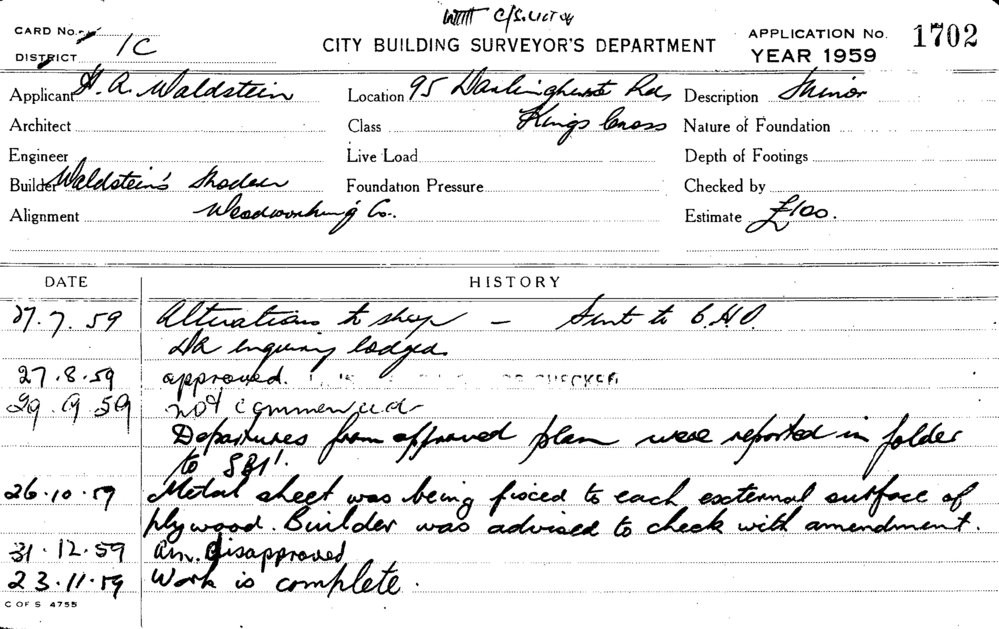 CARD No.
CITY BUILDING SURVEYOR'S DEPARTMENT
APPLICATION No. 1702
DISTRICT 1C
YEAR 1959
Applicant H. A. Waldstein
Location 95 Darlinghurst Rd,
Description Minor
Architect
Class Kings Cross
Nature of Foundation
Engineer
Live Load
Depth of Footings
Builder Waldstein's Modern
Foundation Pressure
Checked by
Alignment Woodworking Co.
Estimate £100.
DATE HISTORY
27.7.59 Alterations to shop – Sent to C.H.O.
enquiry lodged
27.8.59 approved. CHECKED
29.9.59 not commenced
Departures from approved plan were reported in folder
to SBI.
26.10.59 Metal sheet was being fixed to each external surface of
plywood. Builder was advised to check with amendment.
31.12.59 Am. Disapproved
23.11.59 Work is complete.
C OF S 4755